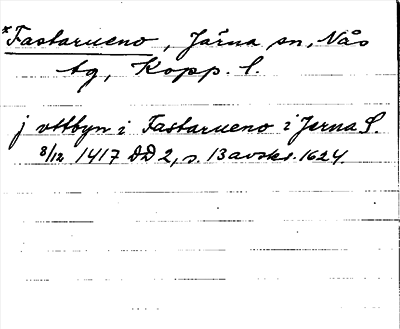 *Fastarueno, Järna sn, Nås
tg, Kopp. l.
j vttbyn i Fastarueno i Jerna S.
8/12 1417 DD 2, s. 13 avskr. 1624.